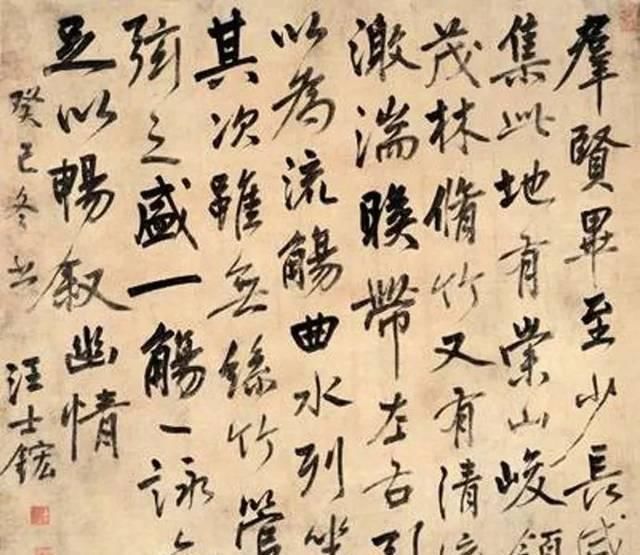 羣賢畢至少長咸
集此地有崇山峻領
茂林脩竹又有清流
激湍暎帶左右引
以為流觴曲水列坐
其次雖無絲竹管
弦之盛一觴一詠
足以暢叙幽情
癸巳冬書 汪士鋐